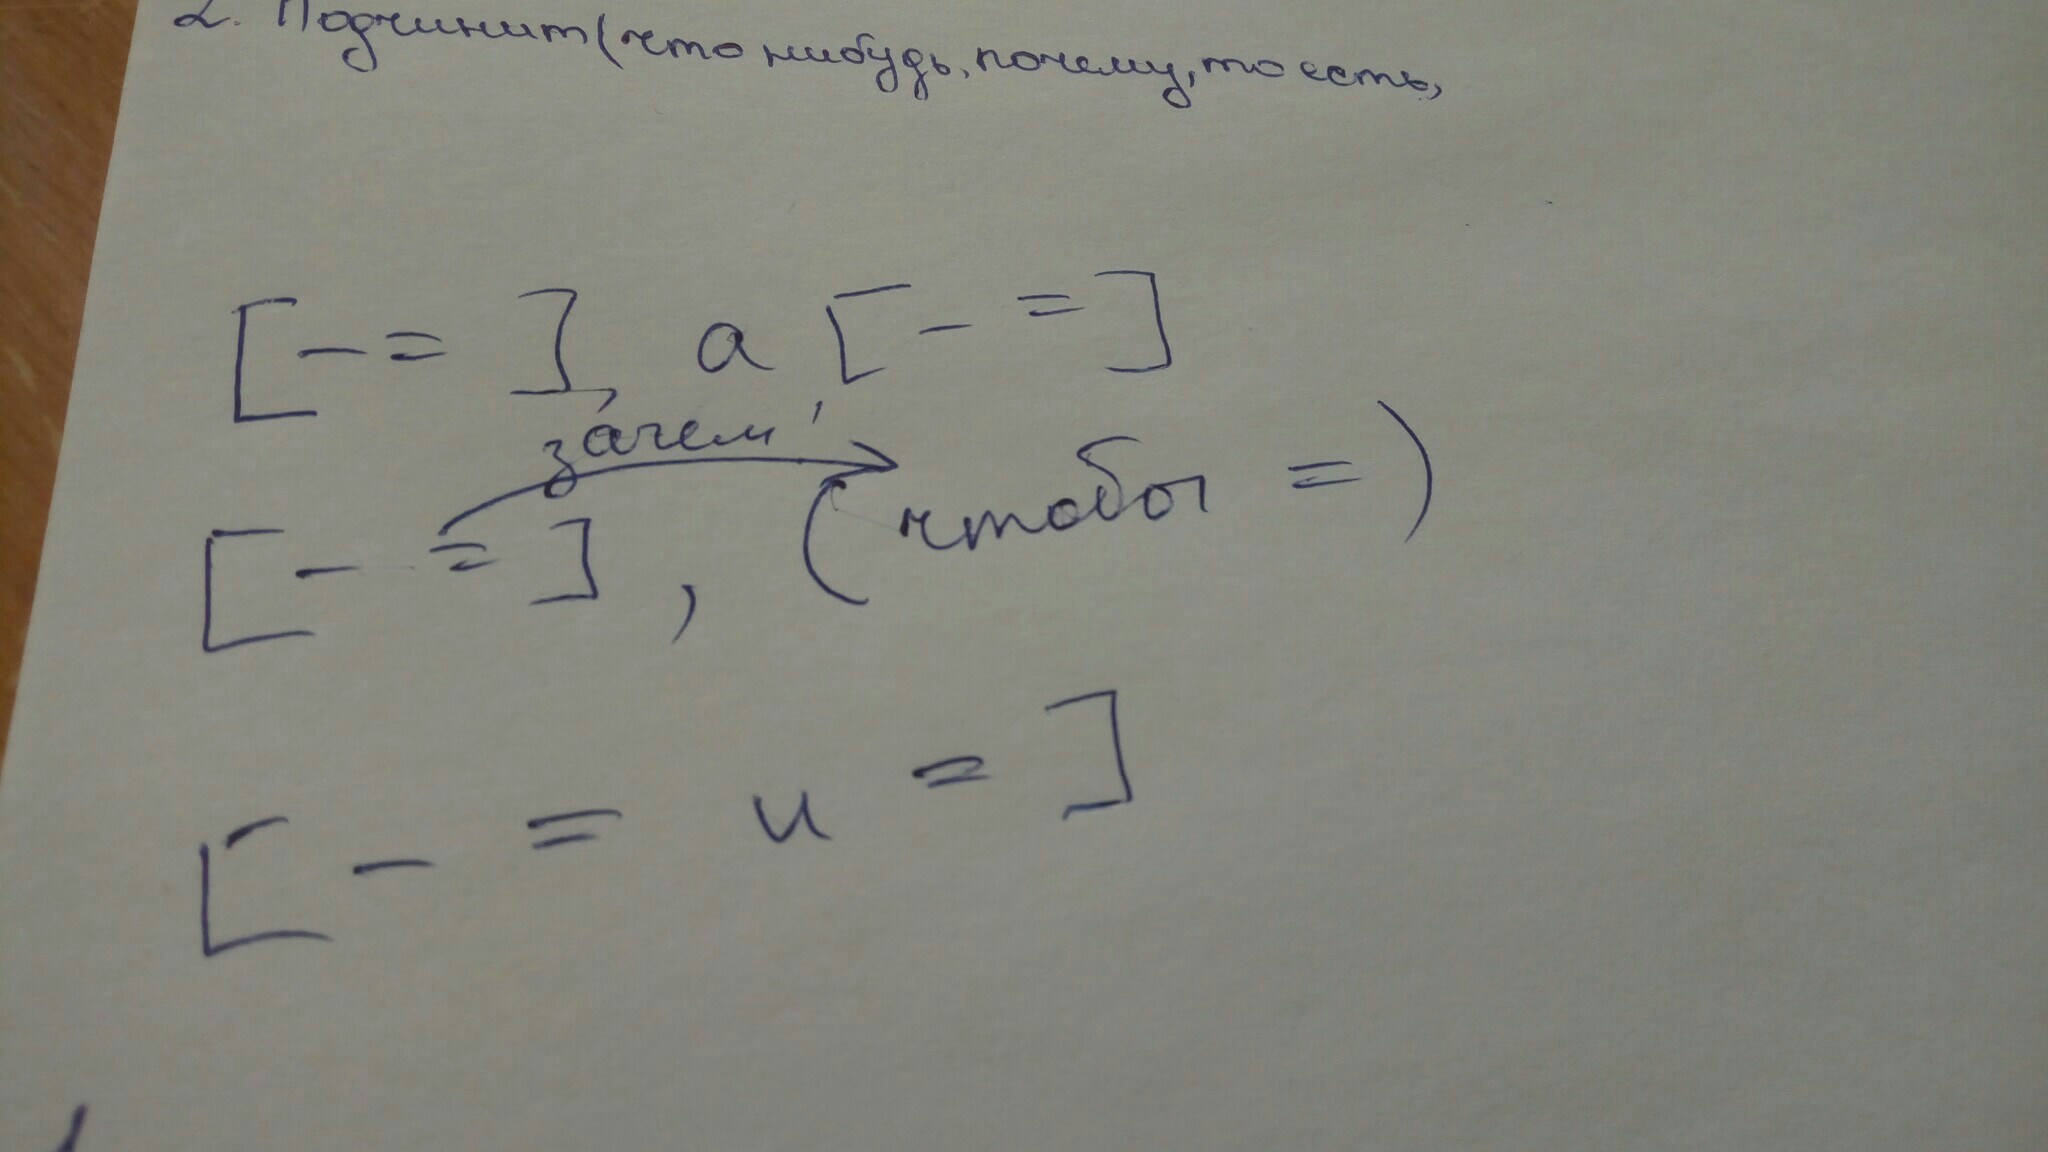 2. Подчинит (что нибудь, почему, то есть,
[— = ], а [— =]
зачем?
[— =], (чтобы =)
[— = и =]